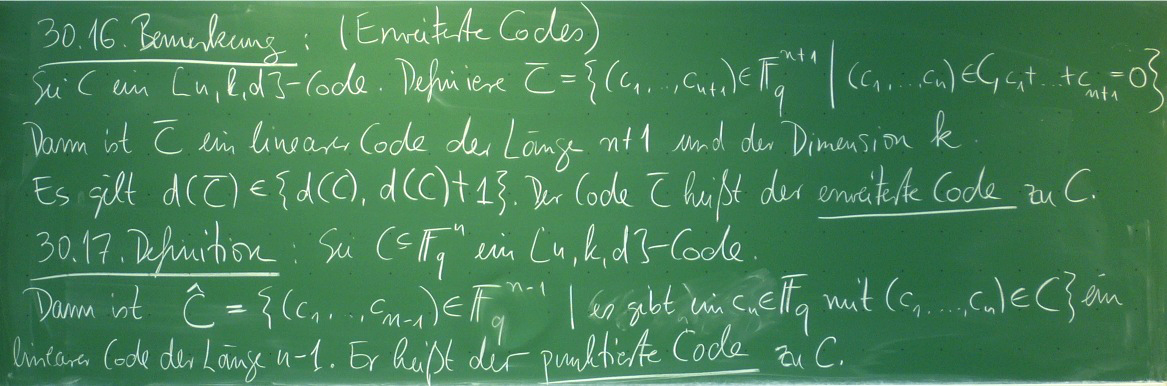 30.16. Bemerkung : (Erweiterte Codes)
Sei C ein [n,k,d]-Code. Definiere C̅ = {(c₁,...,cₙ₊₁) ∈ 𝔽_q^{n+1} | (c₁,...,cₙ) ∈ C, c₁+...+cₙ₊₁ = 0}
Dann ist C̅ ein linearer Code der Länge n+1 und der Dimension k.
Es gilt d(C̅) ∈ {d(C), d(C)+1}. Der Code C̅ heißt der erweiterte Code zu C.
30.17. Definition : Sei C ⊆ 𝔽_q^n ein [n,k,d]-Code.
Dann ist Ĉ = {(c₁,...,cₙ₋₁) ∈ 𝔽_q^{n-1} | es gibt ein cₙ ∈ 𝔽_q mit (c₁,...,cₙ) ∈ C} ein
linearer Code der Länge n-1. Er heißt der punktierte Code zu C.